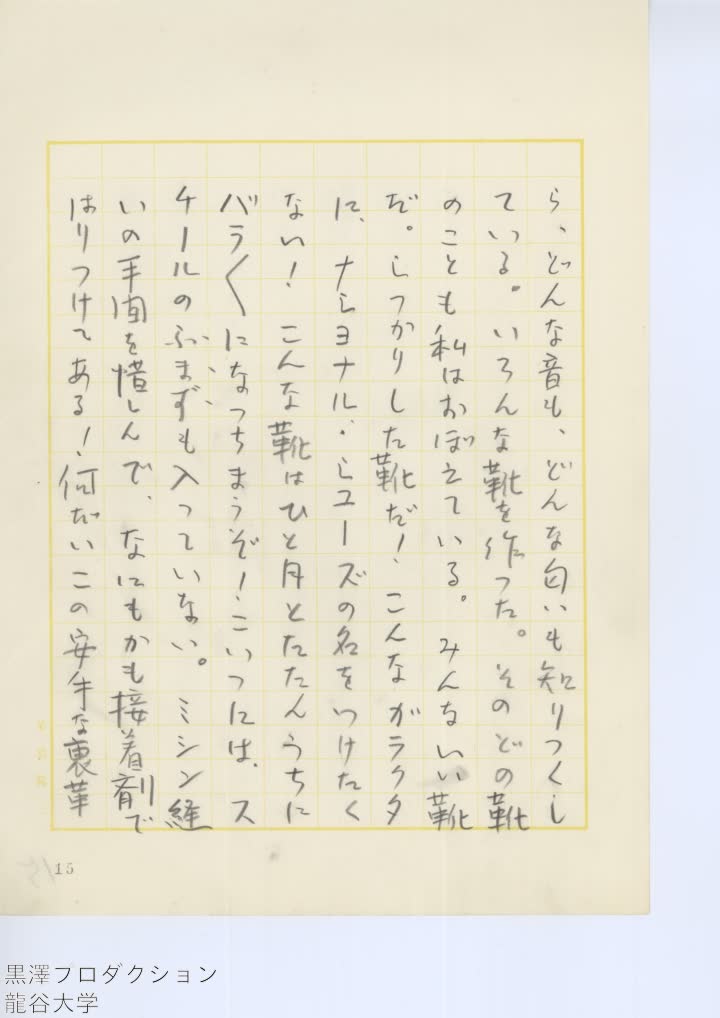 ら、どんな音も、どんな匂いも知りつくし
ている。いろんな靴を作つた。そのどの靴
のことも私はおぼえている。みんないい靴
だ。しつかりした靴だ！こんなガラクタ
に、ナショナル・シューズの名をつけたく
ない！こんな靴はひと月とたたんうちに
バラ〱になつちまうぞ！こいつには、ス
チールのふまずも入つていない。ミシン縫
いの手間を惜しんで、なにもかも接着剤で
はりつけてある！何だいこの安手な裏革
15
黒澤プロダクション
龍谷大学